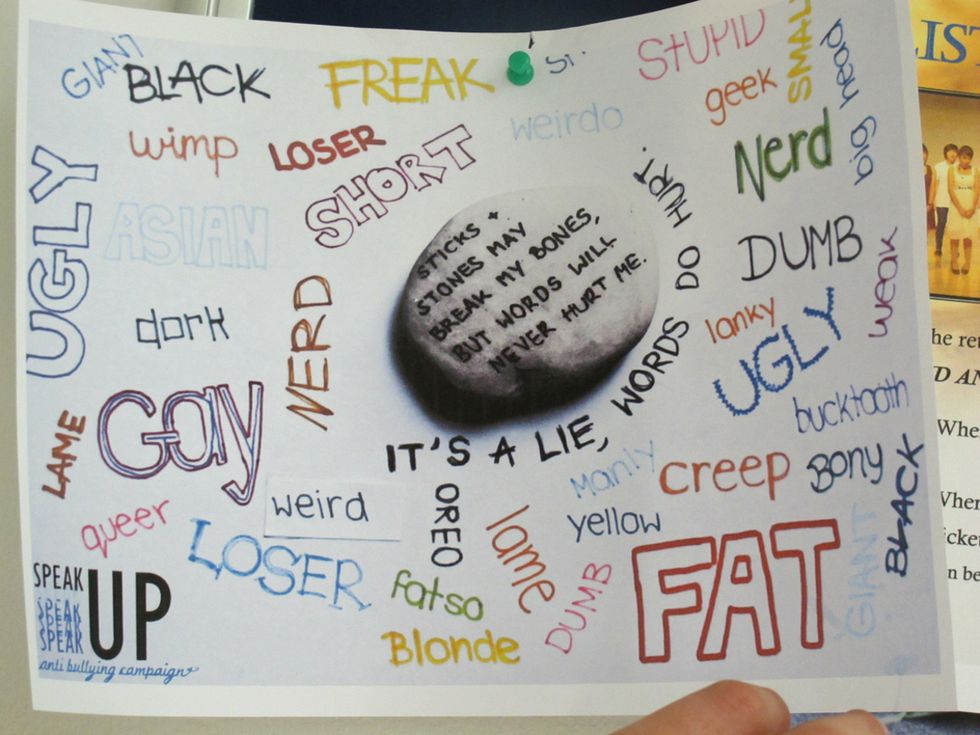 GIANT
BLACK
FREAK
STUPID
SMALL
big head
geek
wimp
LOSER
SHORT
weirdo
Nerd
UGLY
ASIAN
STICKS +
STONES MAY
BREAK MY BONES,
BUT WORDS WILL
NEVER HURT ME.
IT'S A LIE, WORDS DO HURT.
DUMB
weak
dork
NERD
lanky
UGLY
bucktooth
LAME
Gay
Manly
creep
BONY
BLACK
queer
weird
OREO
lame
yellow
LOSER
fatso
DUMB
FAT
GIANT
Blonde
SPEAK UP
SPEAK
SPEAK
SPEAK
anti bullying campaign
LIST
he ret
D AN
Whe
When
icket
n be